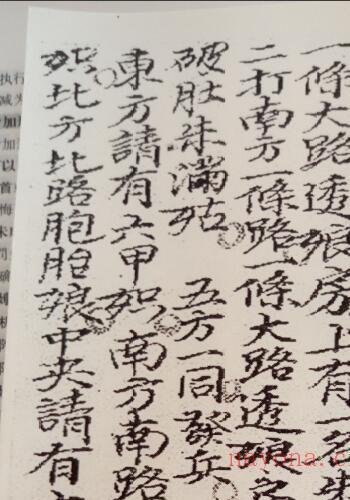 一條大路透娘房上有一
二打南方一條路一條大路透娘
破肚朱滿姑 五方一同發兵
東方請有六甲 南方南路
比方比路胞胆娘中央請有
执行
减为
加
加
以
首
悔
nayona.c